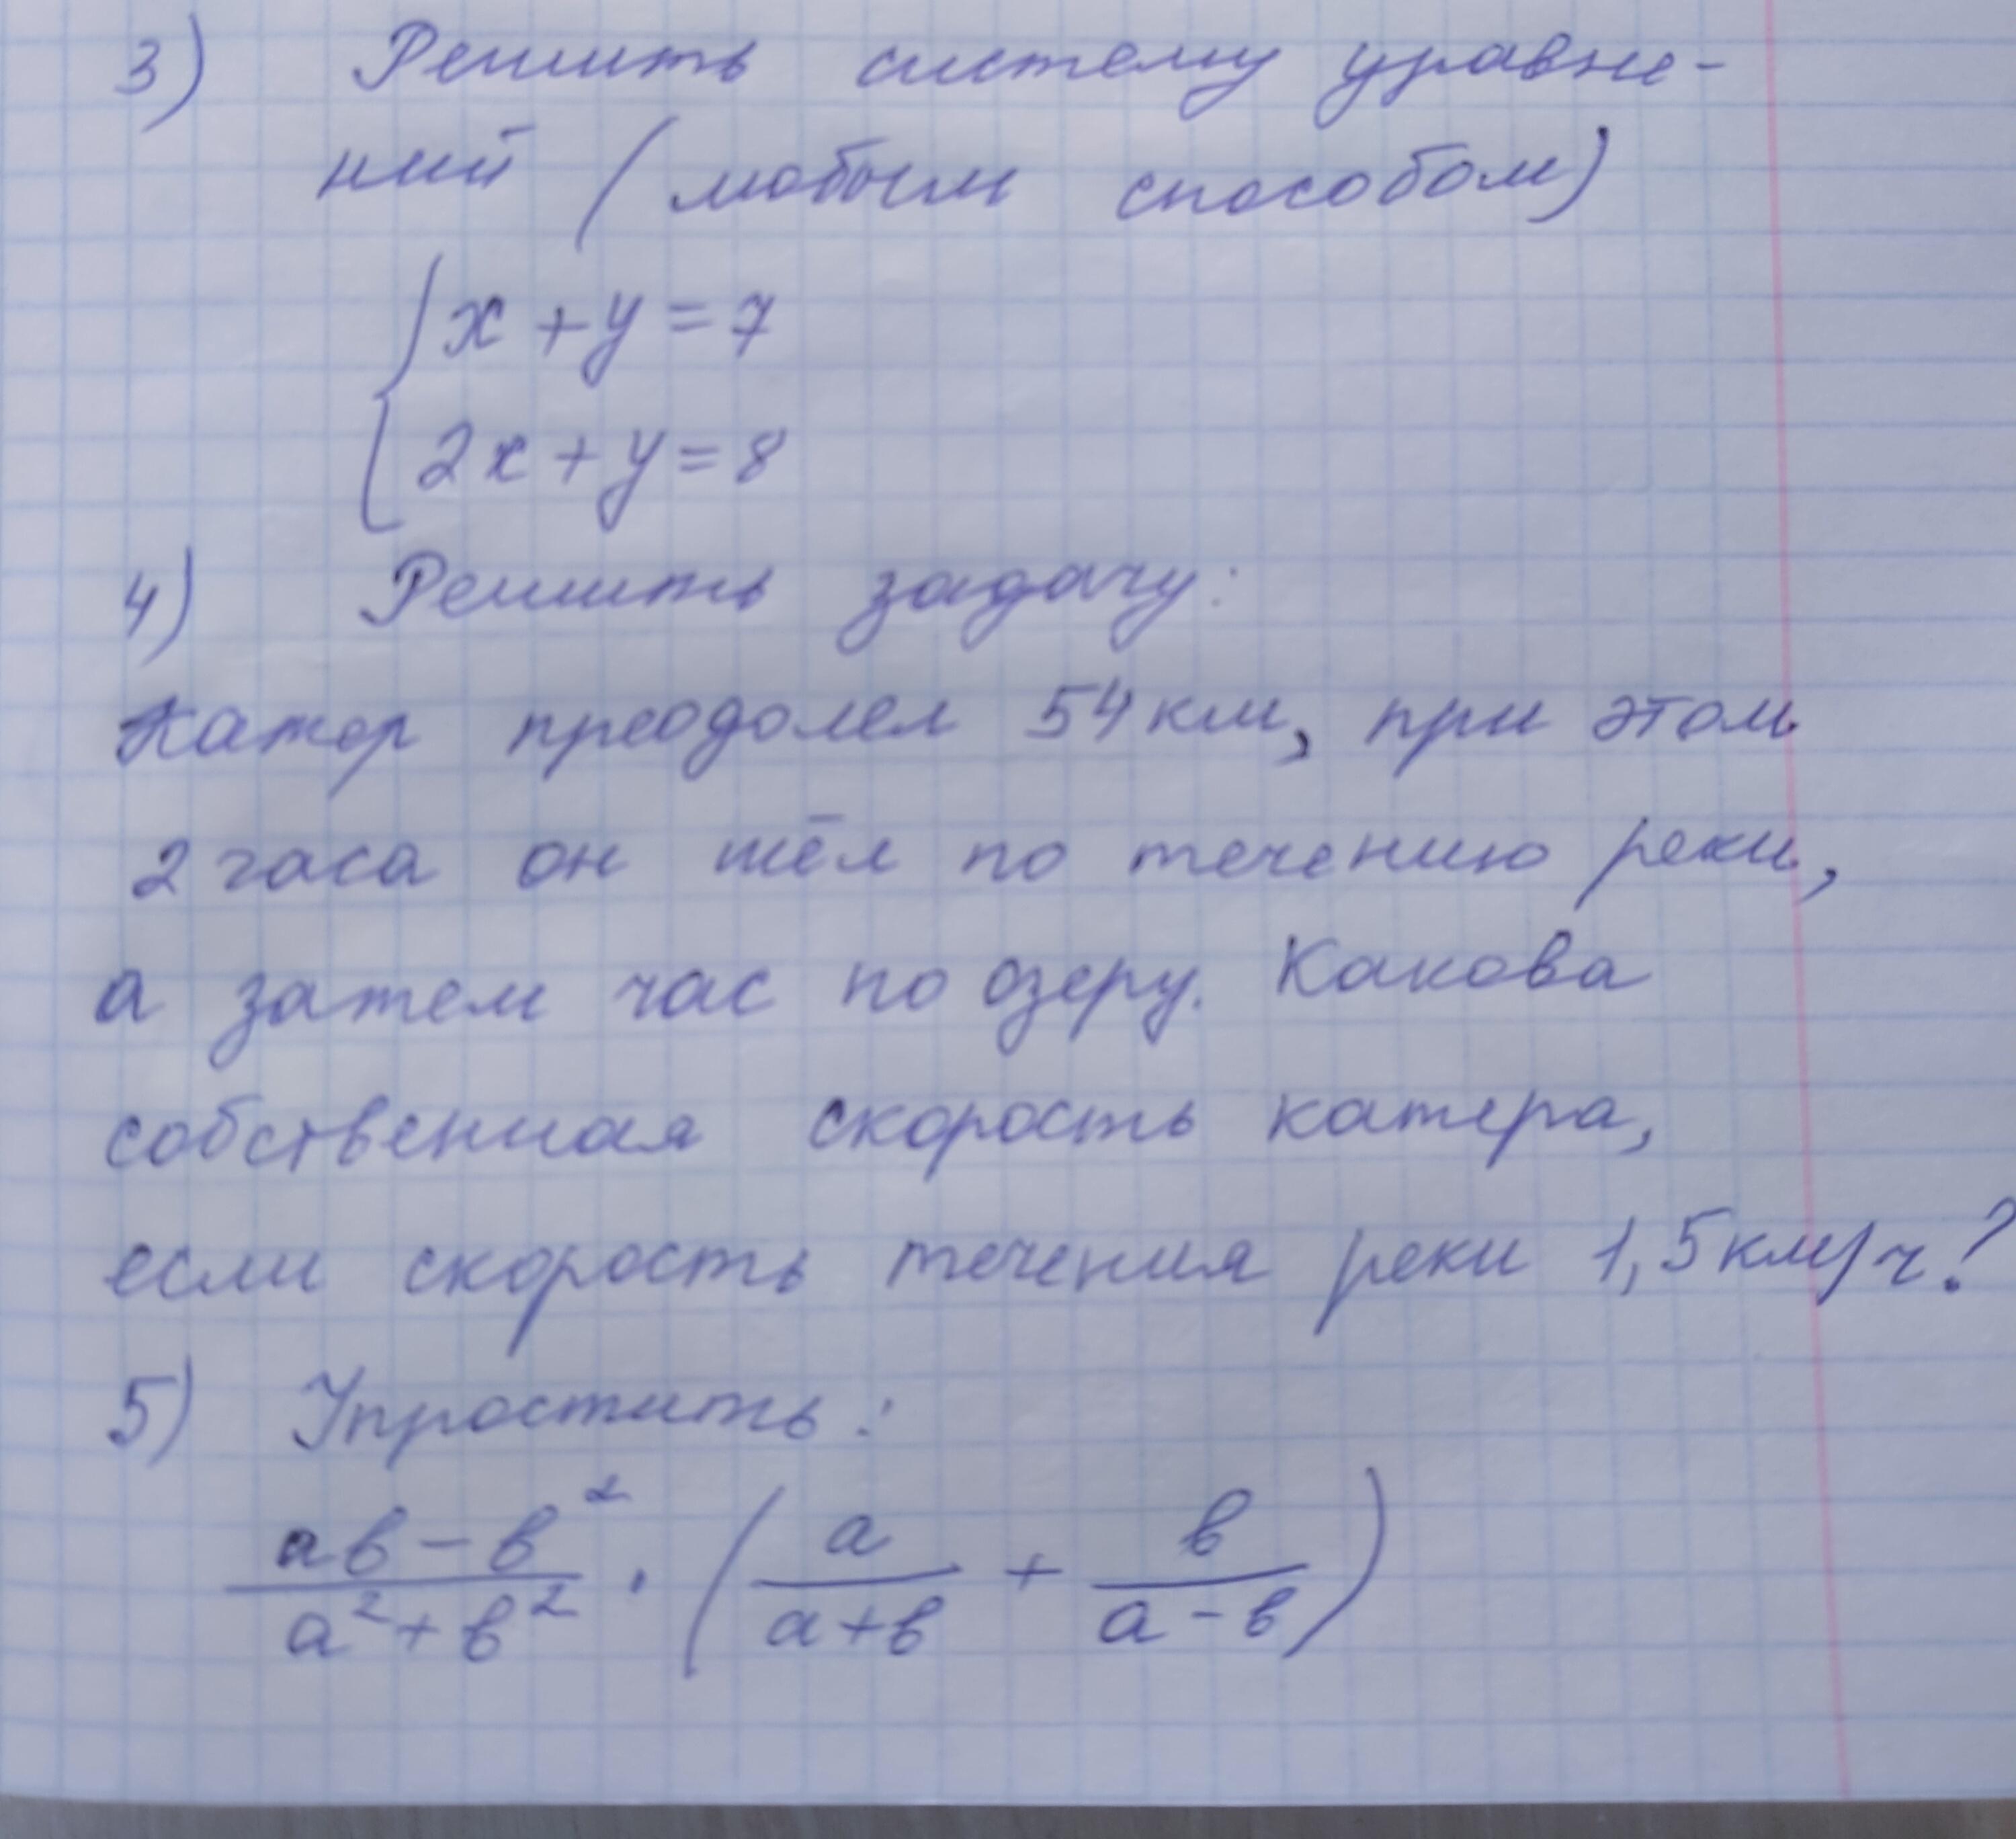 3) Решить систему уравне-
ний (любым способом)
{ x + y = 7
2x + y = 8
4) Решить задачу:
Катер преодолел 54 км, при этом
2 часа он шёл по течению реки,
а затем час по озеру. Какова
собственная скорость катера,
если скорость течения реки 1,5 км/ч?
5) Упростить:
(ab - b²)/(a² + b²) · (a/(a+b) + b/(a-b))